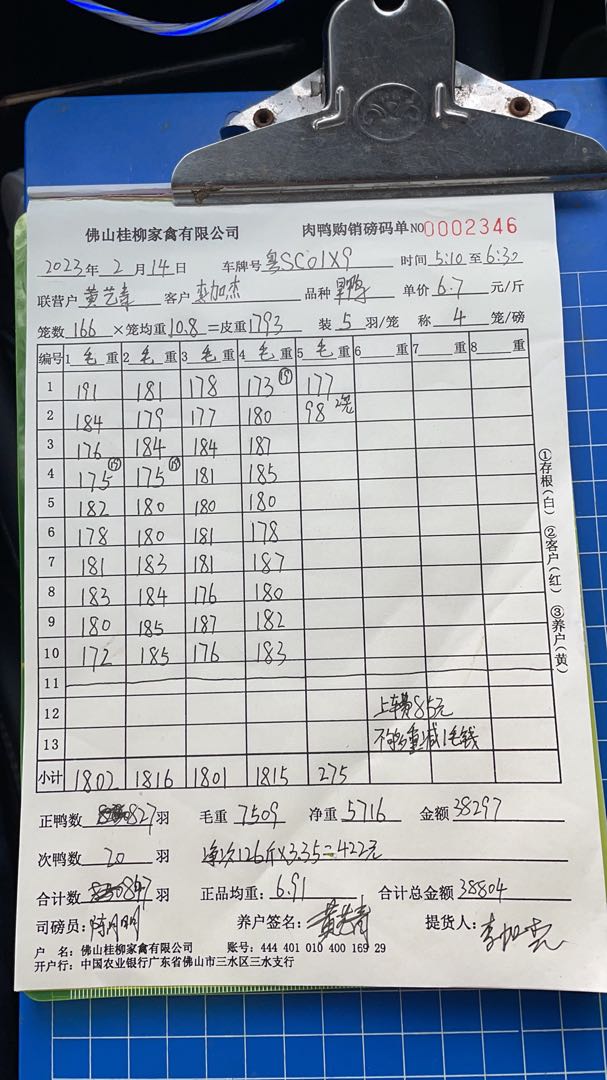 佛山桂柳家禽有限公司 肉鸭购销磅码单 NO 0002346
2023年 2月 14日 车牌号 粤SC01X9 时间 5:10 至 6:30
联营户 黄艺青 客户 李加杰 品种 单价 6.7 元/斤
笼数 166 ×笼均重 10.8 =皮重 1793 装 5 羽/笼 称 4 笼/磅
编号 1 毛 重 2 毛 重 3 毛 重 4 毛 重 5 毛 重 6 重 7 重 8 重
1 191 181 178 173 177
2 184 179 177 180 98 2笼
3 176 184 184 187
4 175 175 181 185
5 182 180 180 180
6 178 180 181 178
7 181 183 181 187
8 183 184 176 180
9 180 185 187 182
10 172 185 176 183
11
12 上车费85元
13 不够重减1毛钱
小计 1802 1816 1801 1815 275
①存根(白) ②客户(红) ③养户(黄)
正鸭数 827 羽 毛重 7509 净重 5716 金额 38297
次鸭数 20 羽 净次126斤×3.35=422元
合计数 847 羽 正品均重: 6.91 合计总金额 38804
司磅员: 陈明明 养户签名: 黄艺青 提货人: 李加杰
户 名: 佛山桂柳家禽有限公司 账号: 444 401 010 400 169 29
开户行: 中国农业银行广东省佛山市三水区三水支行